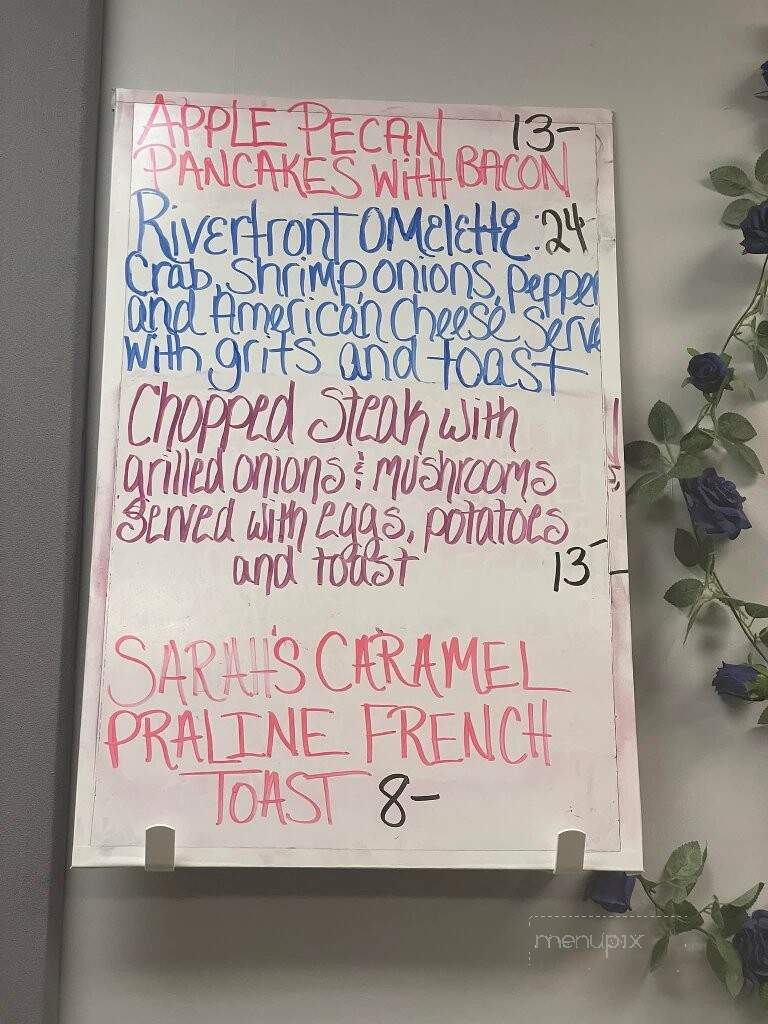 APPLE PECAN 13-
PANCAKES WITH BACON
Riverfront OMelette: 24-
Crab, shrimp, onions, pepper
and American Cheese serve
with grits and toast
Chopped Steak with
grilled onions & mushrooms
Served with eggs, potatoes
and toast 13-
SARAH'S CARAMEL
PRALINE FRENCH
TOAST 8-
menupix